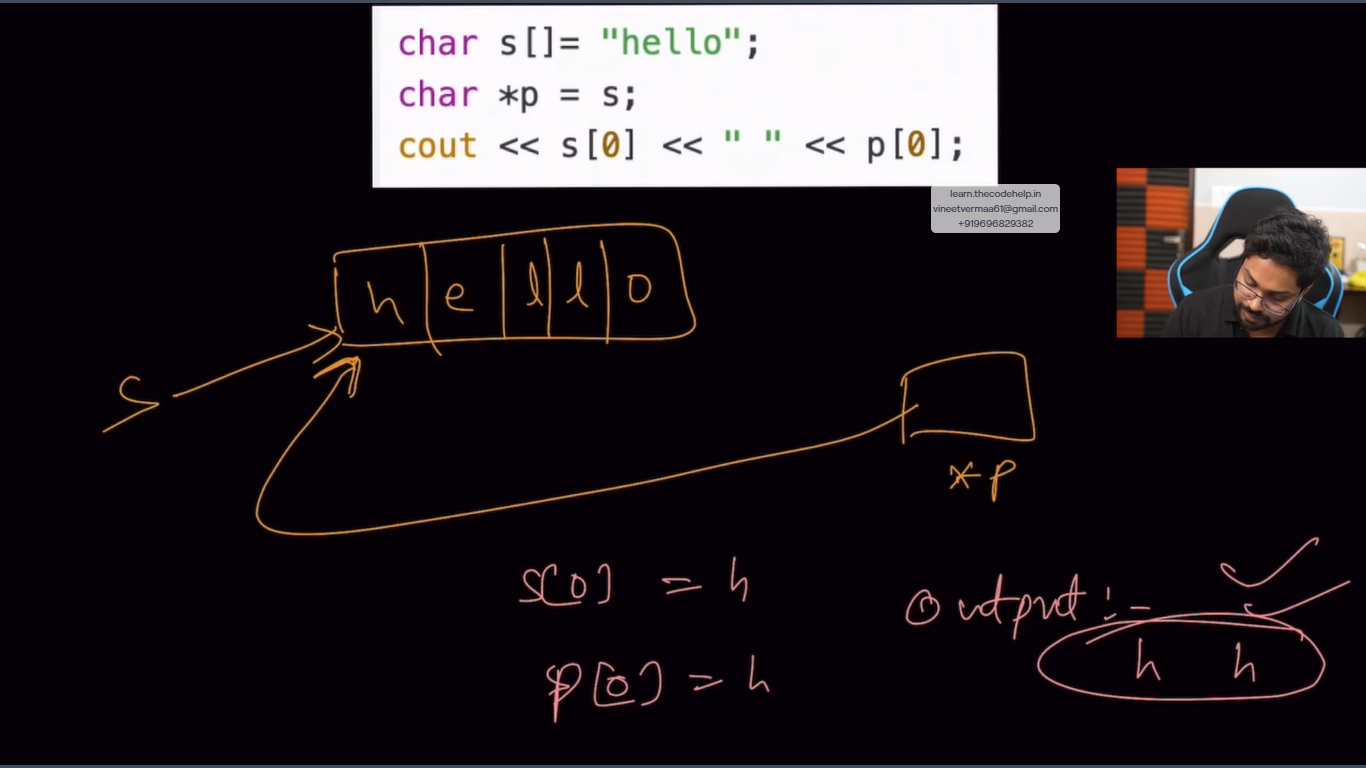 char s[]= "hello";
char *p = s;
cout << s[0] << " " << p[0];
learn.thecodehelp.in
vineetvermaa61@gmail.com
+919696829382
h e l l o
S
*p
s[0] = h
p[0] = h
Output :-
h h